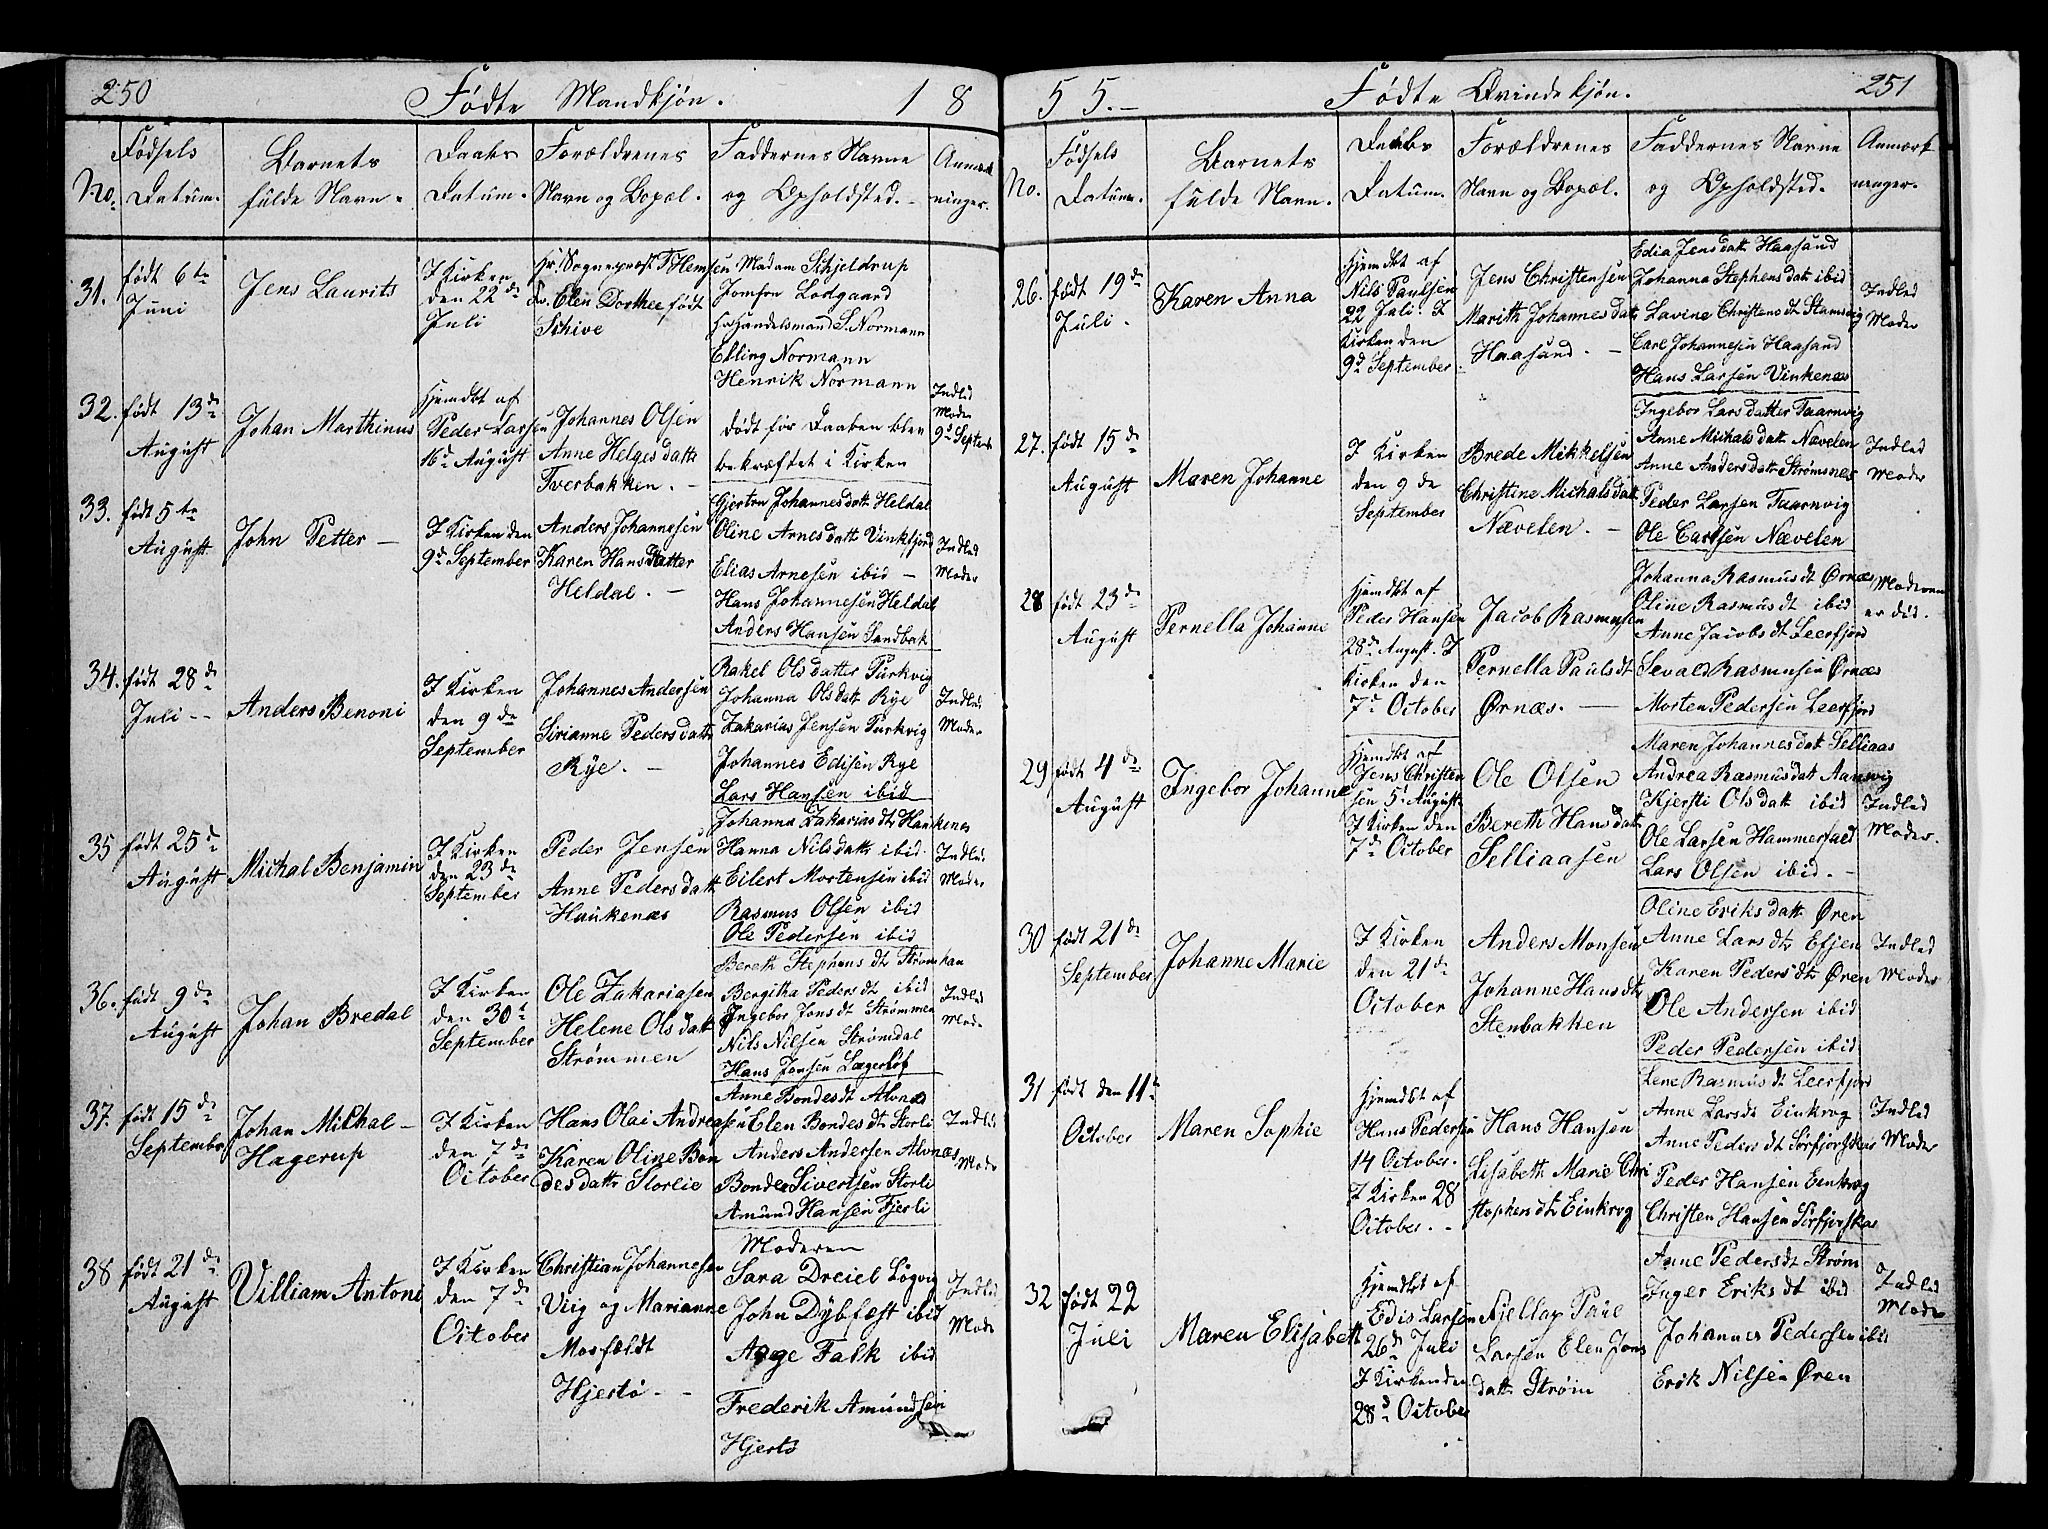 250
Fødte Mandkjøn.
18
No.
Fødsels
Datum.
Barnets
fulde Navn.
Daabs
Datum.
Forældrenes
Navn og Bopæl.
Faddernes Navne
og Opholdsted.
Anmærk
ninger.
31.
født 6te
Juni
Jens Laurits
I Kirken
den 22de
Juli
Hr. Sognepræst T Hemsen
Fr. Elen Dorthee født
Schive
Madam Schjeldrup
Jomfru Lodgaard
Hr Handelsmand S. Normann
Elling Normann
Henrik Normann
32.
født 13de
August
Johan Marthinus
Hjemdbt af
Peder Larsen
16d August
Johannes Olsen
Anne Helgesdatt
Tverbakken.
Født før Daaben blev
bekræftet i Kirken
Indled
Moder
9d Septemb
33.
født 5te
August
John Petter
I Kirken den
9d September
Anders Johannesen
Karen Hansdatter
Heldal.
Gjertru Johannesdatt Heldal
Oline Arnesdatt Vinkfjord
Elias Arnesen ibid
Hans Johannesen Heldal
Anders Hansen Sandbak
Indled
Moder
34.
født 28de
Juli
Anders Benoni
I Kirken
den 9de
September
Johannes Andersen
Sirianne Pedersdatt
Rye.
Rakel Olsdatter Turkvig
Johanna Olsdatt Rye
Zakarias Jensen Turkvig
Johannes Edisen Rye
Lars Hansen ibid
Indled
Moder
35
født 25de
August
Michal Benjamin
I Kirken
den 23de
September
Peder Jensen
Anne Pedersdatt
Haukenæs
Johanna Zakariasdtr Haukenes
Hanna Nilsdatt ibid.
Eilert Mortensen ibid
Rasmus Olsen ibid
Ole Pedersen ibid
Indled
Moder
36.
født 9de
August
Johan Bredal
I Kirken
den 30t
September
Ole Zakariasen
Helene Olsdatt
Strømmen
Bereth Stephensdtr Strømhan
Bergitha Pedersdt ibid
Ingebor Jonsdt Strømmen
Nils Nilsen Strømdal
Hans Jonsen Lægerløf
Indled
Mode
37.
født 15de
September
Johan Michal
Hagerup
I Kirken
den 7de
October
Hans Olai Andreasen
Karen Oline Bon
desdatt Storlie
Anne Bondesdt Alvnæs
Elen Bondesdt Storli
Anders Andersen Alvnæs
Bonde Sivertsen Storli
Amund Hansen Fjerli
Indled
Mode
38
født 21de
August
Villiam Antoni
I Kirken
den 7de
October
Christian Johannesen
Viig og Marianne
Mosfældt
Hjertø
Moderen
Sara Dreiel Løgvig
John Dybfest ibid
Aage Falk ibid
Frederik Amundsen
Hjertø
Indled
Mode
55.
Fødte Qvindekjøn.
251
No.
Fødsels
Datum.
Barnets
fulde Navn.
Daabs
Datum.
Forældrenes
Navn og Bopæl.
Faddernes Navne
og Opholdsted.
Anmærk
ninger.
26.
født 19de
Juli.
Karen Anna
Hjemdbt af
Nils Paulsen
22 Juli. I
Kirken den
9d September
Jens Christensen
Marith Johannesdatt
Haasund.
Edia Jensdatt Haasund
Johanna Stephensdatt ibid
Lavine Christensdt Stamvig
Carl Johannesen Haasund
Hans Larsen Vinkenæs
Indled
Moder
27.
født 15de
August
Maren Johanne
I Kirken
den 9de
September
Brede Mikkelsen
Christine Michalsdatt
Nævelen.
Ingebor Larsdatter Taarnvig
Anne Michalsdatt Nævelen
Anne Andersdatt Strømsnes
Peder Larsen Taarnvig
Ole Carlsen Nævelen
Indled
Moder
28
født 23de
August
Pernella Johanne
Hjemdbt af
Peder Hansen
28d August. I
Kirken den
7de October
Jacob Rasmusen
Pernella Paulsdt
Ørnæs.
Johanna Rasmusdt Ørnæs
Oline Rasmusdt ibid
Anne Jacobsdt Leerfjord
Sevald Rasmusen Ørnæs
Morten Pedersen Leerfjord
Moderen
er død.
29
født 4de
August
Ingebor Johanne
Hjemdbt af
Jens Christen
sen 5t August
I Kirken den
7de October
Ole Olsen
Bereth Hansdatt
Selliaasen
Maren Johannesdatt Selliaas
Andrea Rasmusdatt Aansvig
Kjersti Olsdatt ibid
Ole Larsen Hammerfald
Lars Olsen ibid.
Indled
Moder.
30
født 21de
September
Johanne Marie
I Kirken
den 21de
October
Anders Monsen
Johanne Hansdtr
Stenbakken
Oline Eriksdatt Øren
Anne Larsdtr Efjen
Karen Pedersdtr Øren
Ole Andersen ibid
Peder Pedersen ibid
Indled
Moder
31
født den 11te
October
Maren Sophie
Hjemdbt af
Hans Pedersen
14 October.
I Kirken 28
October.
Hans Hansen
Lisabeth Marie Chri
stophersdtr Einkrog
Lene Rasmusdt Leerfjord
Anne Larsdt Einkrog
Anne Pedersdt Sørfjordskar
Peder Hansen Einkrog
Christen Hansen Sørfjorskar
Indled
Moder
32
født 22
Juli
Maren Elisabeth
Hjemdbt af
Edis Larsen
26de Juli
I Kirken den
28d October
Fjellap Paul
Larsen Elen Jons
datt Strøm
Anne Pedersdt Strøm
Inger Eriksdt ibid
Johannes Pedersen ibid
Erik Nilsen Øren
Indled
Moder